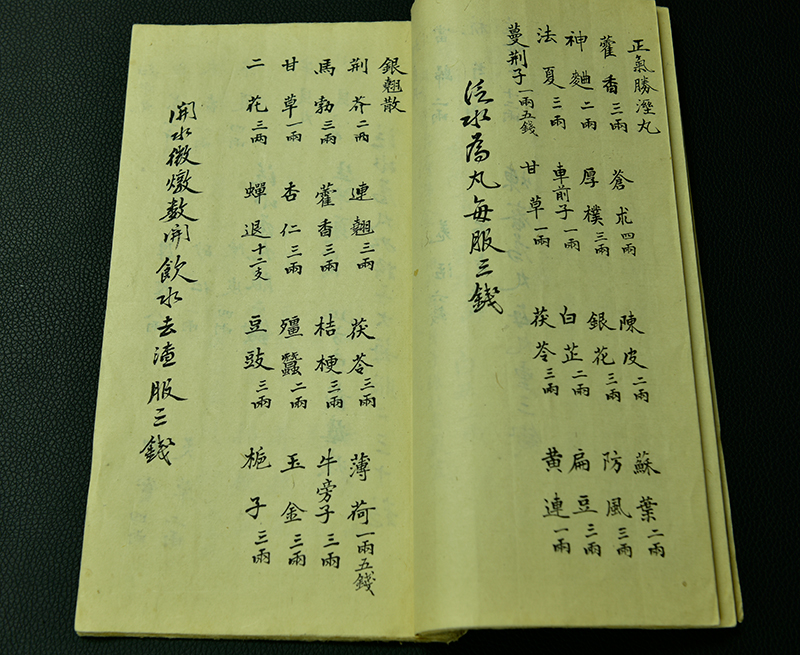 正氣勝溼丸
藿香三兩 蒼朮四兩 陳皮二兩 蘇葉二兩
神麯二兩 厚樸三兩 銀花三兩 防風三兩
法夏三兩 車前子一兩 白芷二兩 扁豆三兩
蔓荊子一兩五錢 甘草一兩 茯苓三兩 黃連一兩
泛水為丸每服三錢
銀翹散
荊芥二两 連翹三兩 茯苓三兩 薄荷一兩五錢
馬勃三兩 藿香三兩 桔梗三兩 牛旁子三兩
甘草一兩 杏仁三兩 殭蠶二兩 玉金三兩
二花三两 蟬退十二支 豆豉三兩 梔子三兩
開水微燉數開飲水去渣服三錢